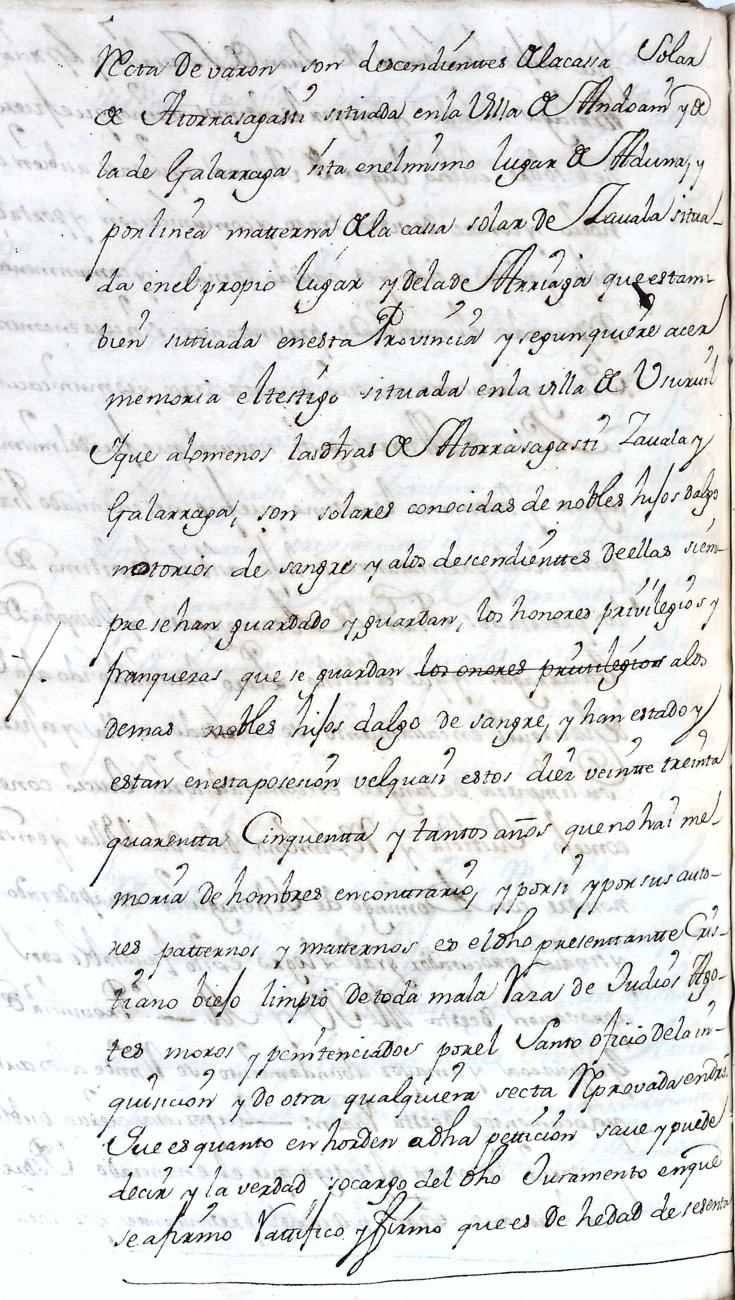 Recta de varon son descendienttes de la cassa Solar
de Atorrasagasti situada en la Villa de Andoain y de
la de Galarraga sita en el mismo lugar de Aduna, y
por linea matterna de la cassa solar de Zavala situa-
da en el propio lugar y de la de Arriaga que es tam-
bien situada en esta Provincia y segun quiere acer
memoria el testigo situada en la villa de Usurvil
Y que a lo menos las dhas de Atorrasagasti Zavala y
Galarraga, son solares conocidas de nobles hijos dalgo
notorios de sangre y a los descendienttes de ellas siem-
pre se han guardado y guardan, los honores privilegios y
franquezas que se guardan los onores privilegios a los
demas nobles hijos dalgo de sangre, y han estado y
estan en esta posesion velquasi estos diez veintte treinta
quarentta Cinquentta y tantos años que no hai me-
moria de hombres en conttrario, y por si y por sus auto-
res patternos y matternos es el dho presenttantte Cris-
tiano biejo limpio de toda mala Raza de Judios Ago-
tes moros y penitenciados por el Santo oficio de la in-
quisicion y de otra qualquiera secta Reprovada en dro.
Que es quanto en horden a dha petticion save y puede
decir y la verdad, socargo del dho Juramento en que
se afirmo Rattifico y firmo que es de hedad de sesenta